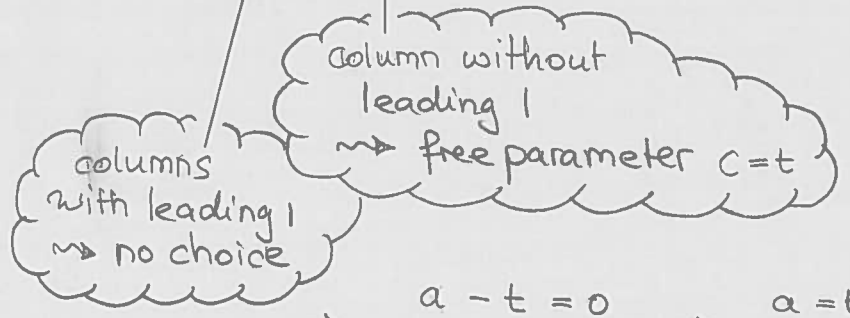 column without
leading 1
⇝ free parameter c=t
columns
with leading 1
⇝ no choice
a - t = 0
a = t